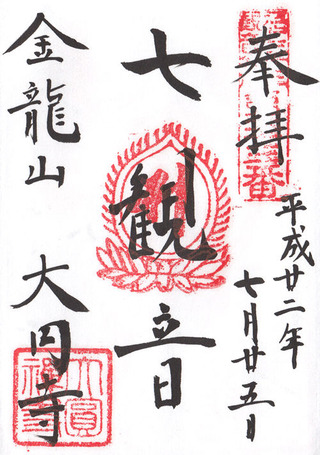 奉拝
平成廿二年
七月廿五日
七観音
金龍山 大円寺